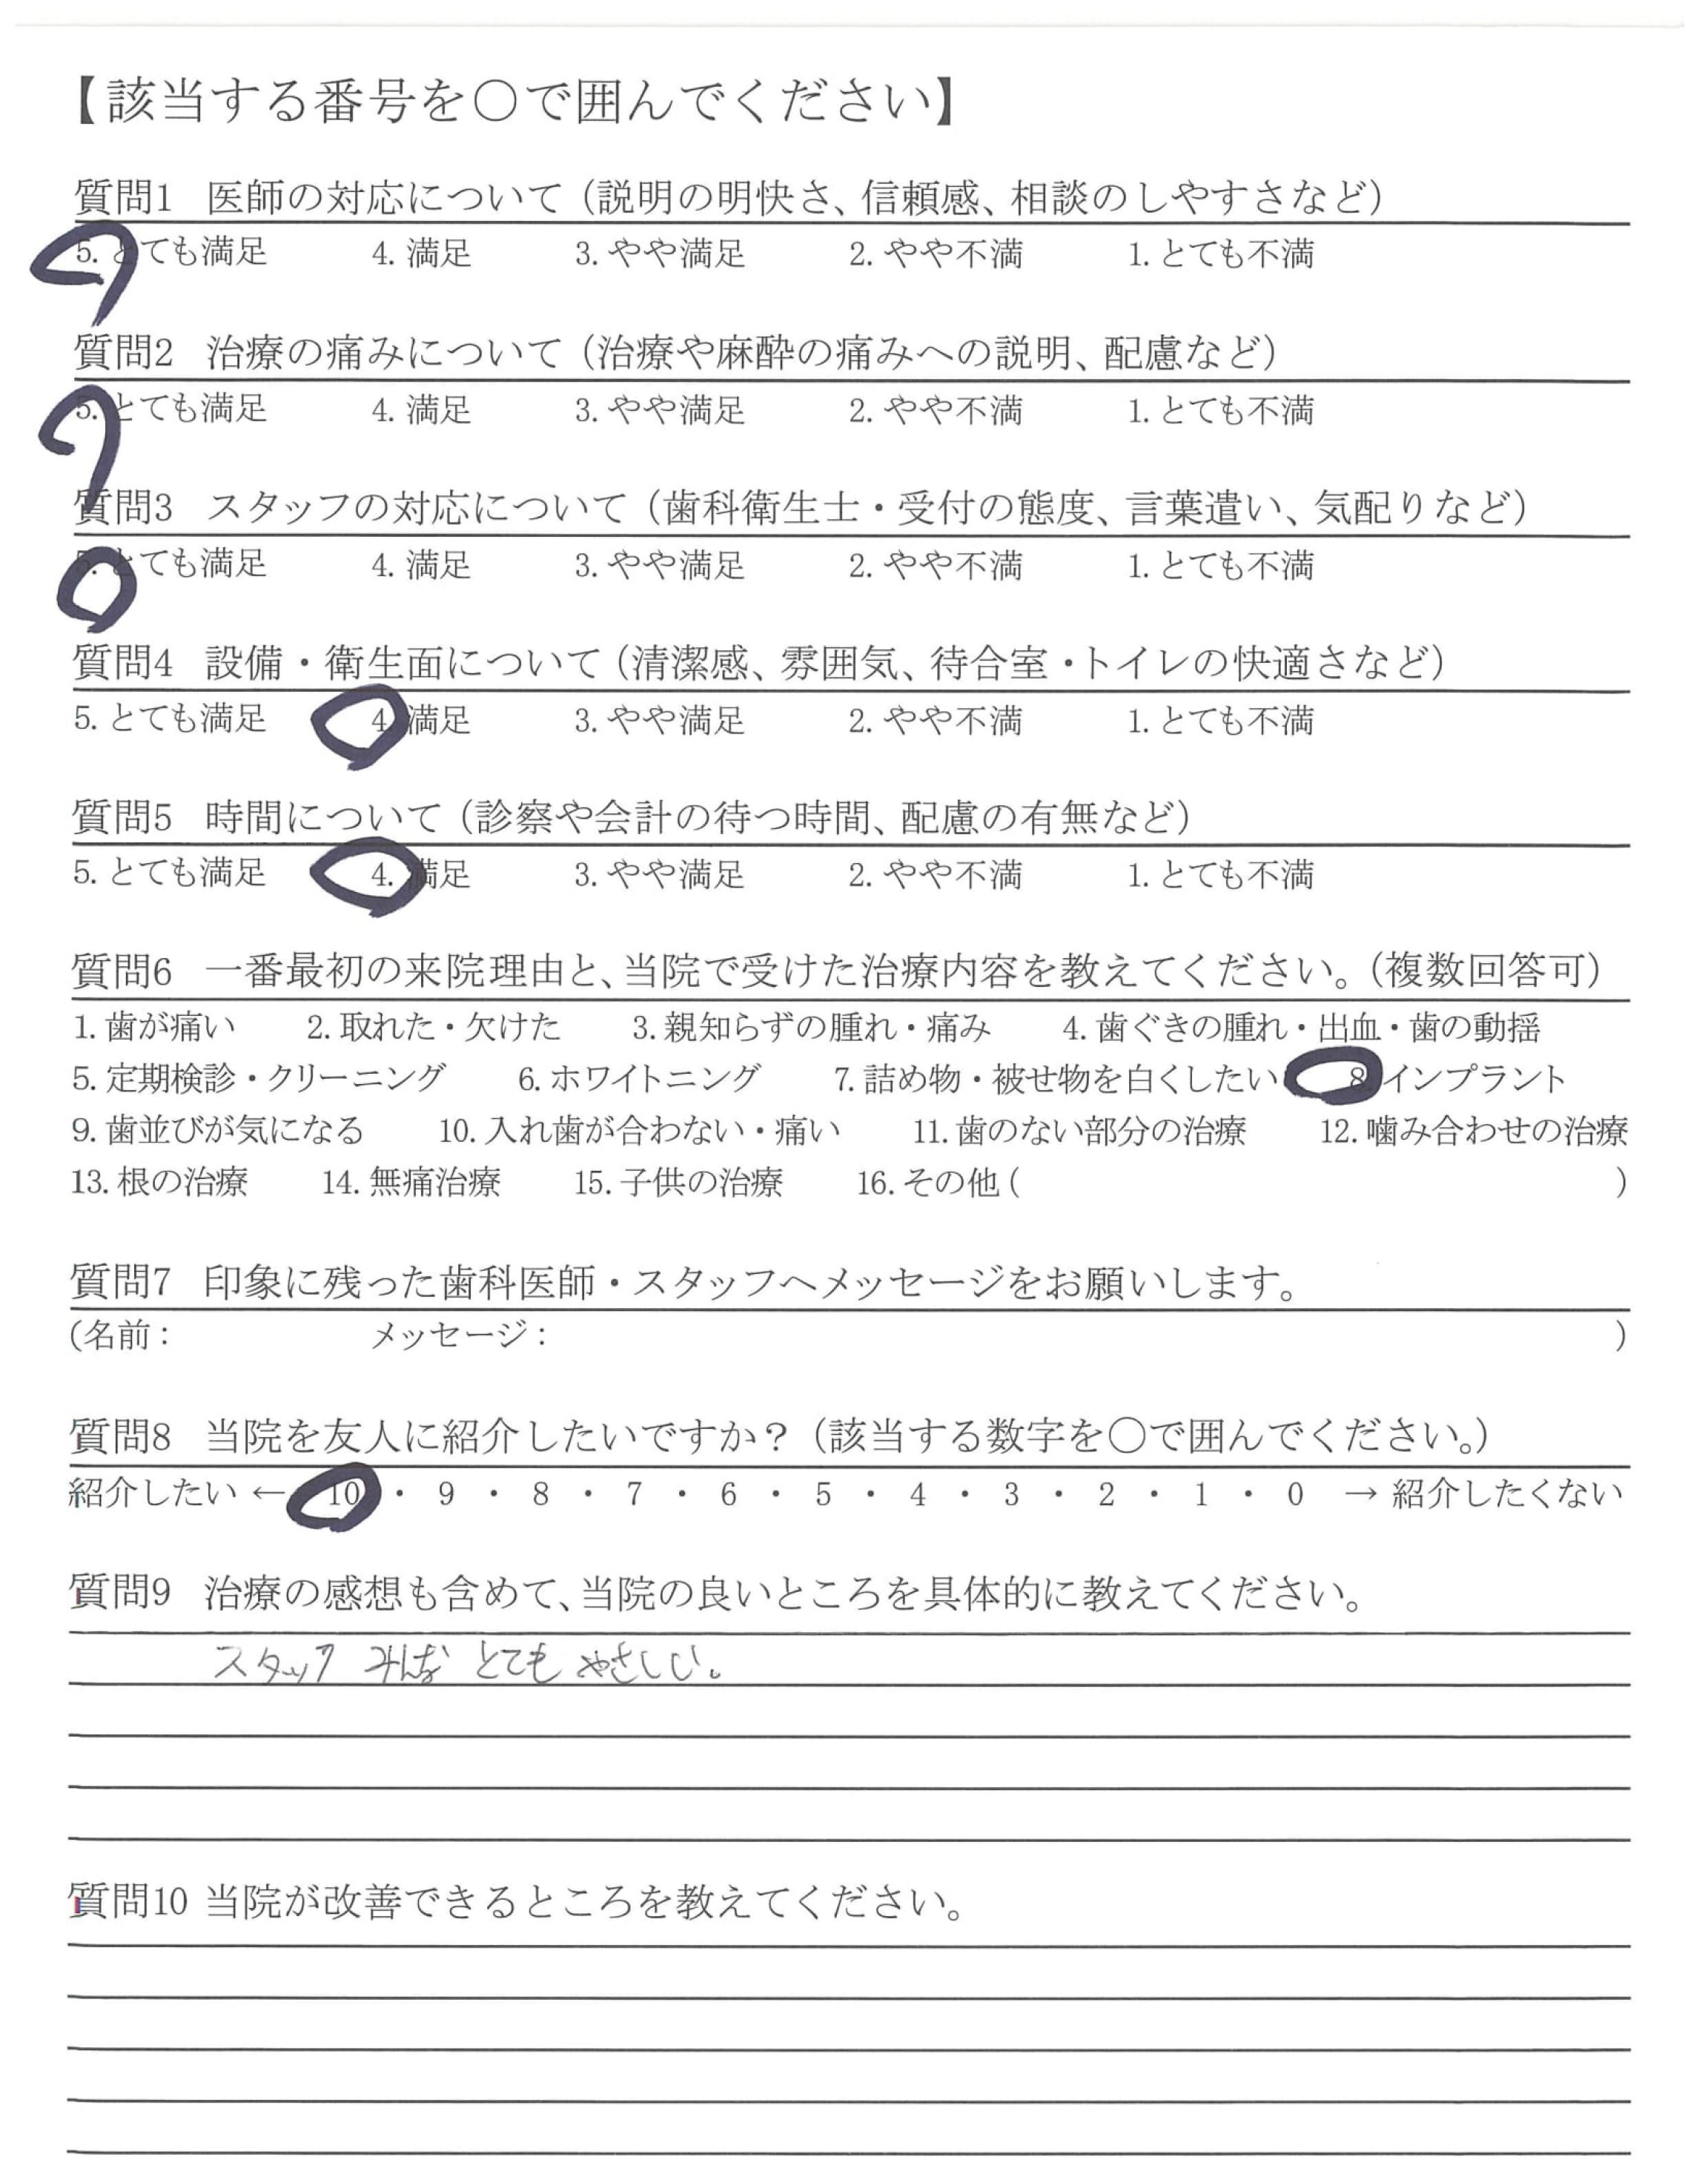 【該当する番号を〇で囲んでください】
質問1 医師の対応について（説明の明快さ、信頼感、相談のしやすさなど）
5. とても満足 4. 満足 3. やや満足 2. やや不満 1. とても不満
質問2 治療の痛みについて（治療や麻酔の痛みへの説明、配慮など）
5. とても満足 4. 満足 3. やや満足 2. やや不満 1. とても不満
質問3 スタッフの対応について（歯科衛生士・受付の態度、言葉遣い、気配りなど）
5. とても満足 4. 満足 3. やや満足 2. やや不満 1. とても不満
質問4 設備・衛生面について（清潔感、雰囲気、待合室・トイレの快適さなど）
5. とても満足 4. 満足 3. やや満足 2. やや不満 1. とても不満
質問5 時間について（診察や会計の待つ時間、配慮の有無など）
5. とても満足 4. 満足 3. やや満足 2. やや不満 1. とても不満
質問6 一番最初の来院理由と、当院で受けた治療内容を教えてください。（複数回答可）
1. 歯が痛い 2. 取れた・欠けた 3. 親知らずの腫れ・痛み 4. 歯ぐきの腫れ・出血・歯の動揺
5. 定期検診・クリーニング 6. ホワイトニング 7. 詰め物・被せ物を白くしたい 8. インプラント
9. 歯並びが気になる 10. 入れ歯が合わない・痛い 11. 歯のない部分の治療 12. 噛み合わせの治療
13. 根の治療 14. 無痛治療 15. 子供の治療 16. その他 ( )
質問7 印象に残った歯科医師・スタッフへメッセージをお願いします。
（名前： メッセージ： ）
質問8 当院を友人に紹介したいですか？（該当する数字を〇で囲んでください。）
紹介したい ← 10 ・ 9 ・ 8 ・ 7 ・ 6 ・ 5 ・ 4 ・ 3 ・ 2 ・ 1 ・ 0 → 紹介したくない
質問9 治療の感想も含めて、当院の良いところを具体的に教えてください。
スタッフ みんな とても やさしい。
質問10 当院が改善できるところを教えてください。